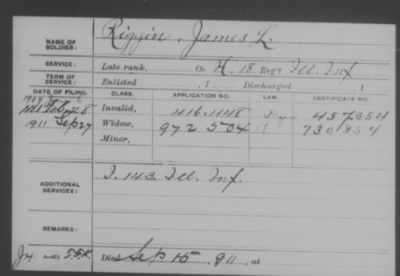 NAME OF SOLDIER: Riggin, James L.
SERVICE: Late rank, Co. H, 18 Reg't Ill. Inf
TERM OF SERVICE: Enlisted , 1 Discharged , 1
DATE OF FILING. CLASS. APPLICATION NO. LAW. CERTIFICATE NO.
Invalid, 416.1148 457354
1911 Sep 27 Widow, 972504 730854
Minor,
ADDITIONAL SERVICES: I. 143 Ill. Inf.
REMARKS:
Died Sep 15, 911, at